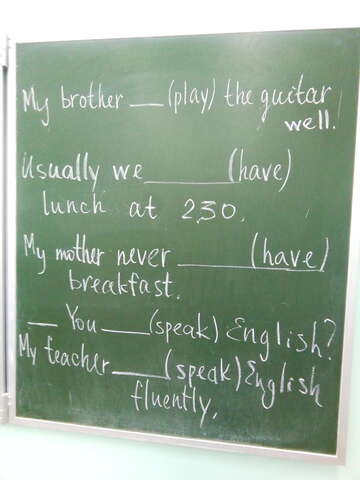 My brother ___ (play) the guitar
well.
Usually we ______ (have)
lunch at 2.30.
My mother never ______ (have)
breakfast.
__ You ____ (speak) English?
My teacher ____ (speak) English
fluently.